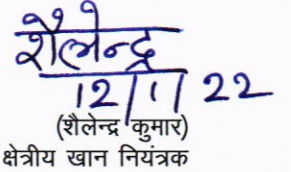 शैलेन्द्र
12/1/22
(शैलेन्द्र कुमार)
क्षेत्रीय खान नियंत्रक